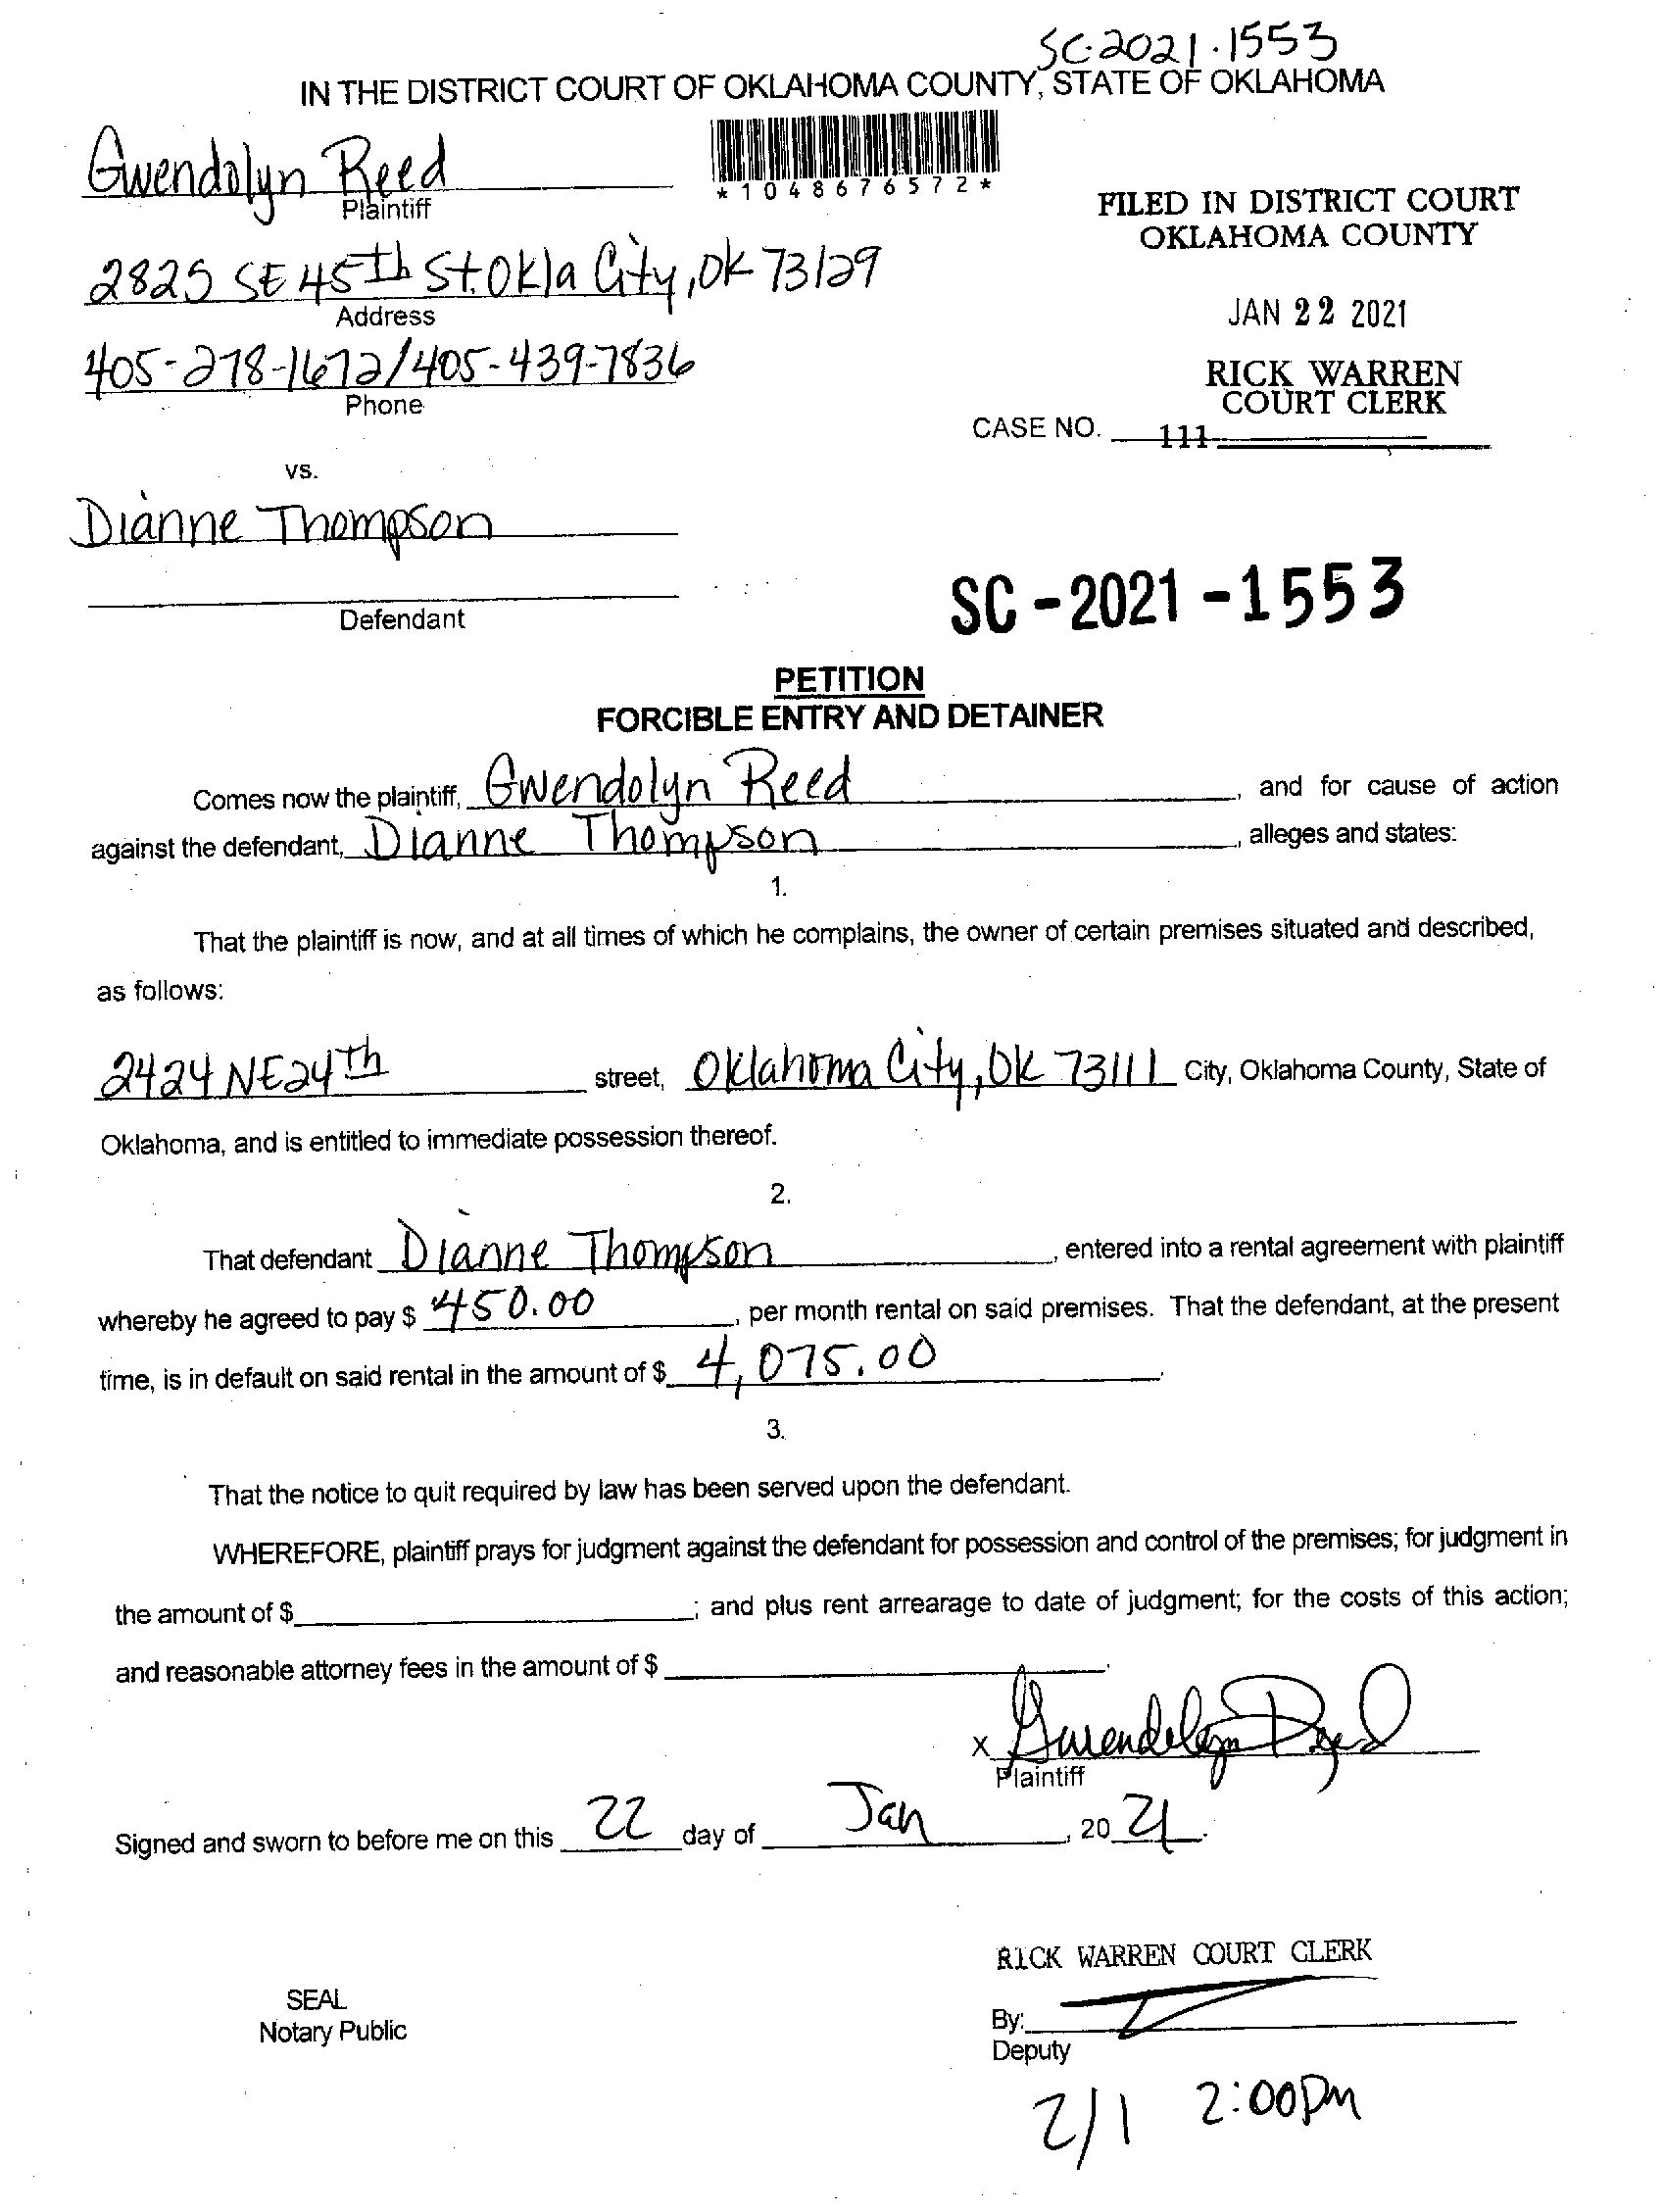 SC-2021-1553
IN THE DISTRICT COURT OF OKLAHOMA COUNTY, STATE OF OKLAHOMA
Gwendolyn Reed
Plaintiff
*1048676572*
FILED IN DISTRICT COURT
OKLAHOMA COUNTY
2825 SE 45th St. Okla City, OK 73129
Address
JAN 22 2021
405-278-1672/405-439-7836
Phone
RICK WARREN
COURT CLERK
CASE NO. 111
vs.
Dianne Thompson
Defendant
SC-2021-1553
PETITION
FORCIBLE ENTRY AND DETAINER
Comes now the plaintiff, Gwendolyn Reed, and for cause of action
against the defendant, Dianne Thompson, alleges and states:
1.
That the plaintiff is now, and at all times of which he complains, the owner of certain premises situated and described,
as follows:
2424 NE 24th street, Oklahoma City, OK 73111 City, Oklahoma County, State of
Oklahoma, and is entitled to immediate possession thereof.
2.
That defendant Dianne Thompson, entered into a rental agreement with plaintiff
whereby he agreed to pay $ 450.00, per month rental on said premises. That the defendant, at the present
time, is in default on said rental in the amount of $ 4,075.00.
3.
That the notice to quit required by law has been served upon the defendant.
WHEREFORE, plaintiff prays for judgment against the defendant for possession and control of the premises; for judgment in
the amount of $ ; and plus rent arrearage to date of judgment; for the costs of this action;
and reasonable attorney fees in the amount of $ .
x Gwendolyn Reed
Plaintiff
Signed and sworn to before me on this 22 day of Jan, 20 21.
RICK WARREN COURT CLERK
SEAL
Notary Public
By:
Deputy
2/1 2:00pm